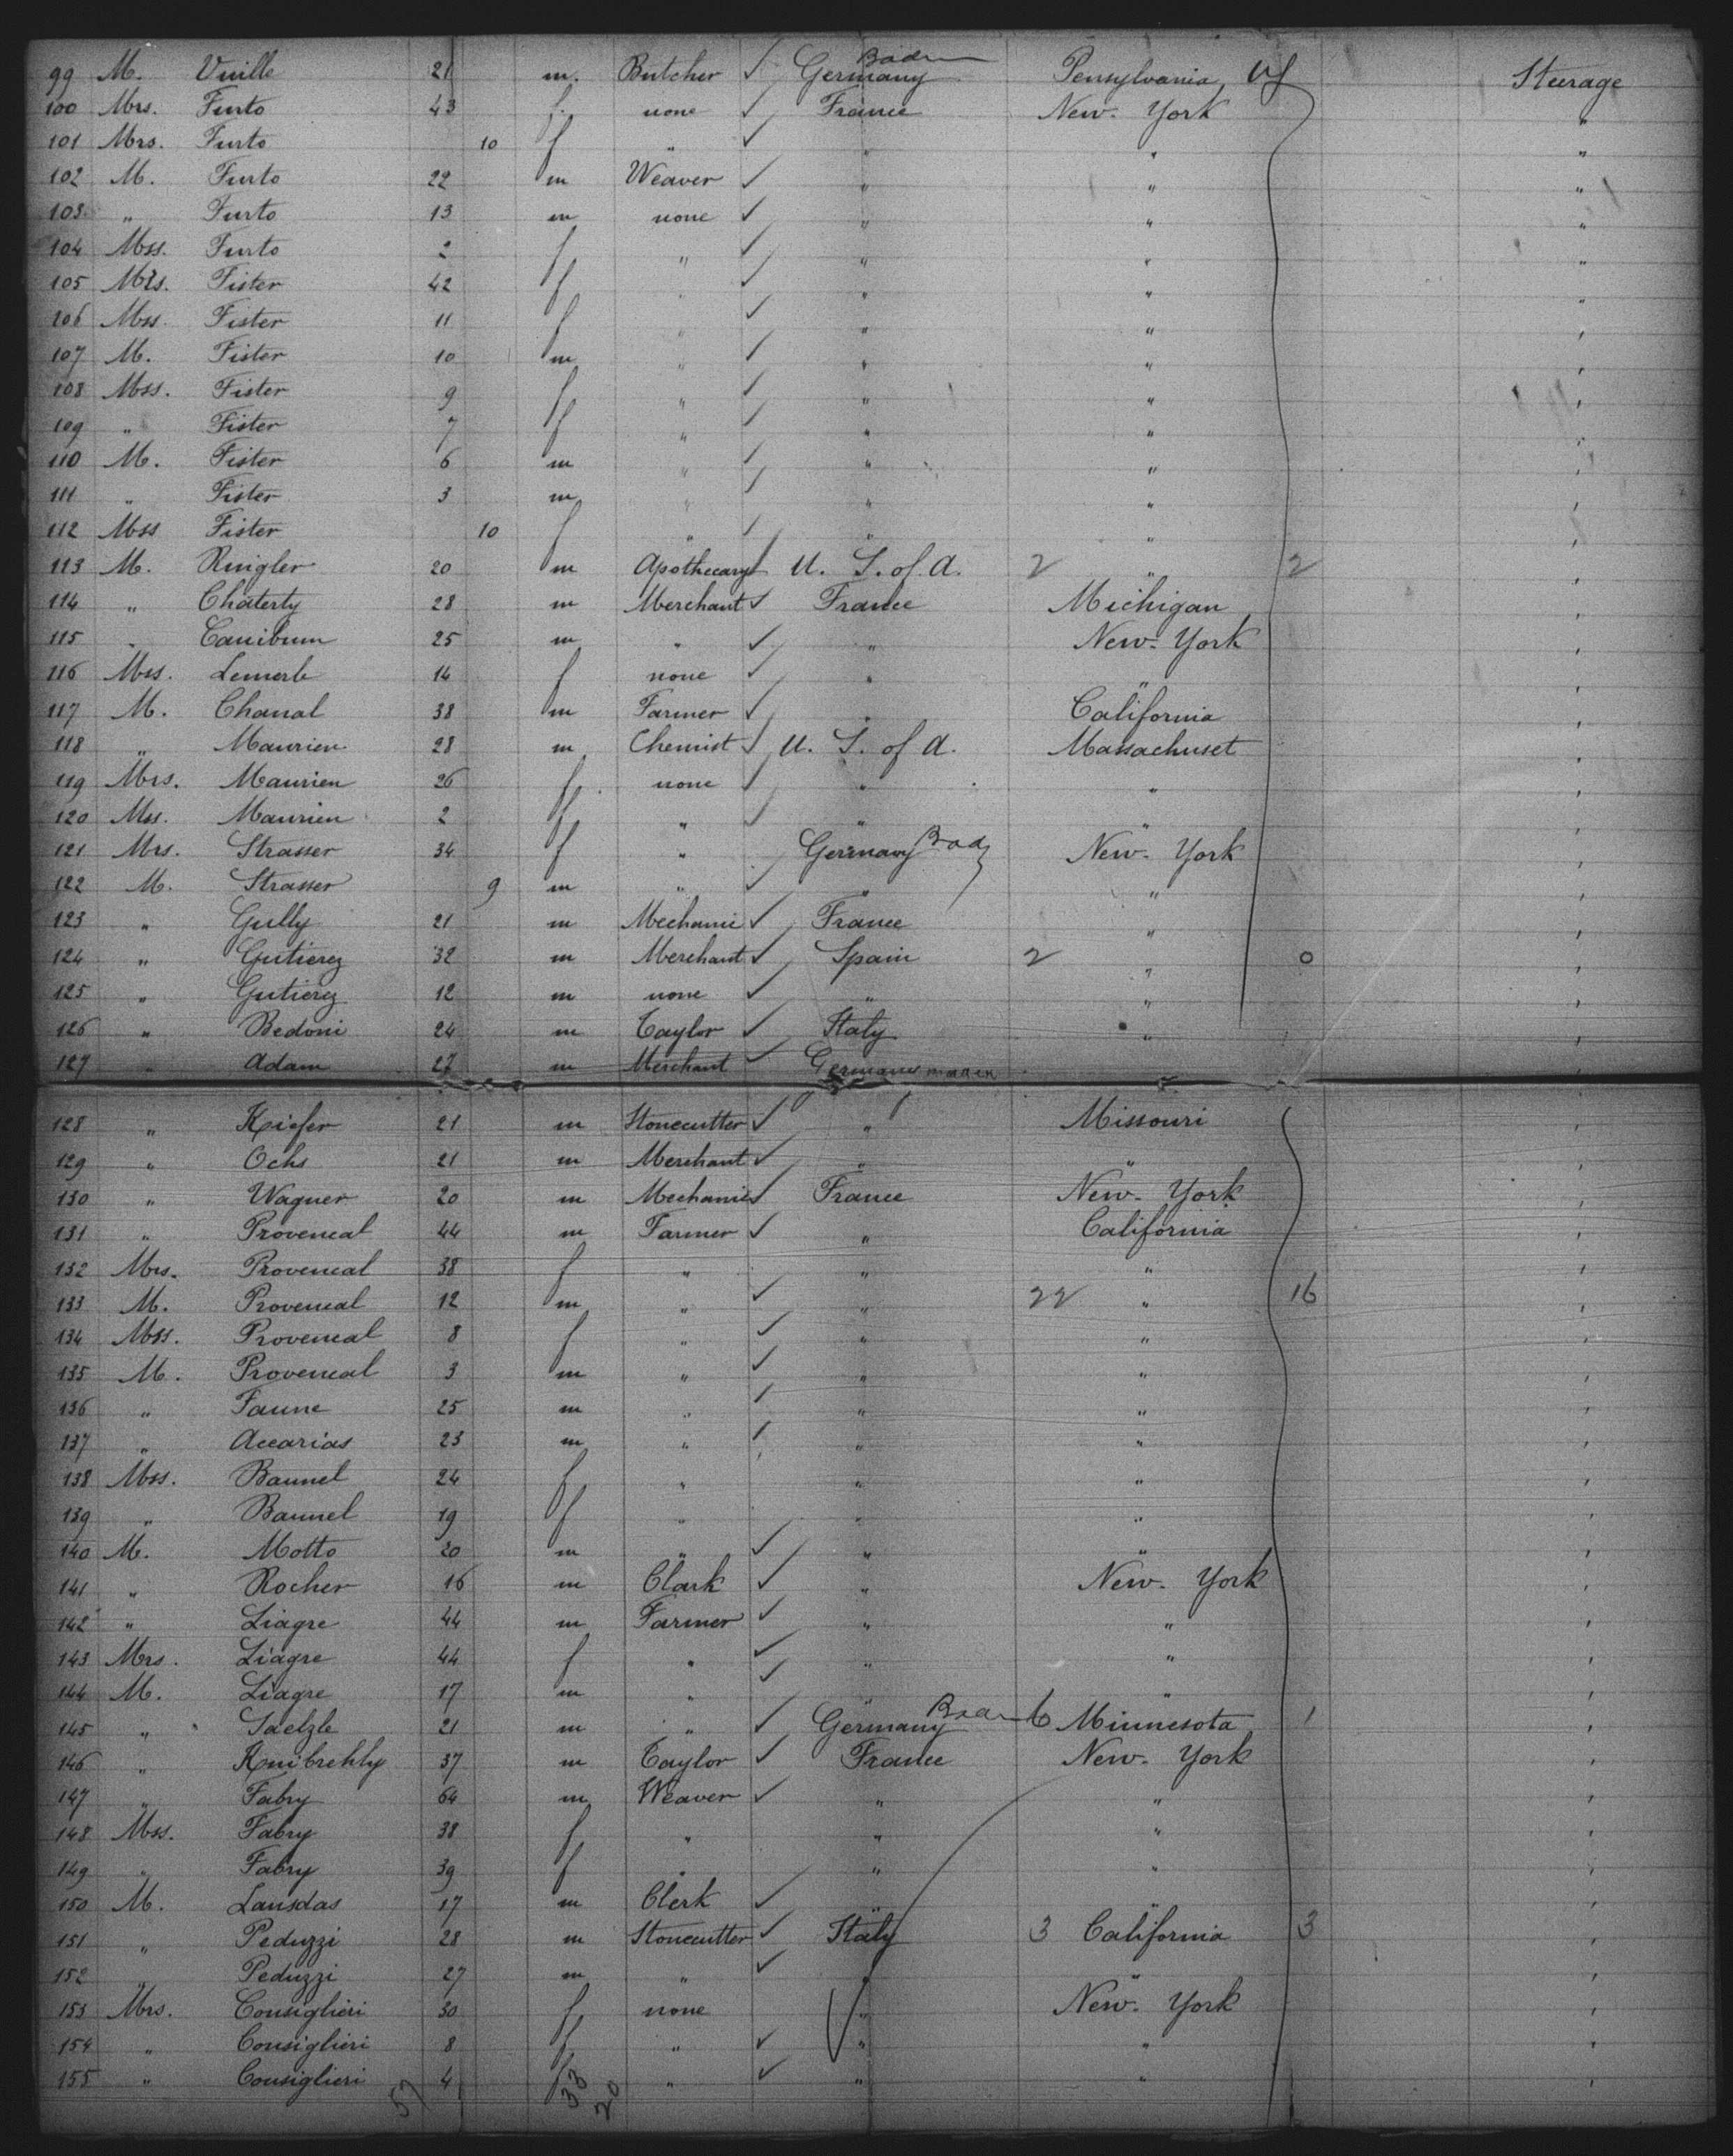 99 M. Vuille 21 m. Butcher ✓ Germany Baden Pensylvania Steerage
100 Mrs. Furto 43 f. none ✓ France New-York "
101 Mrs. Furto 10 f " ✓ " " "
102 M. Furto 22 m Weaver ✓ " " "
103 " Furto 13 m none ✓ " " "
104 Mss. Furto 2 f " ✓ " " "
105 Mrs. Fister 42 f " ✓ " " "
106 Mss. Fister 11 f " ✓ " " "
107 M. Fister 10 m " ✓ " " "
108 Mss. Fister 9 f " ✓ " " "
109 " Fister 7 f " ✓ " " "
110 M. Fister 6 m " ✓ " " "
111 " Fister 3 m " ✓ " " "
112 Mss Fister 10 f " ✓ " " "
113 M. Ringler 20 m Apothecary ✓ U. S. of A. 2 " 2 "
114 " Chaterty 28 m Merchant ✓ France Michigan "
115 " Canibum 25 m " ✓ " New-York "
116 Mss. Lemerle 14 f none ✓ " " "
117 M. Chanal 38 m Farmer ✓ " California "
118 " Maurien 28 m Chemist ✓ U. S. of A. Massachuset "
119 Mrs. Maurien 26 f. none ✓ " " "
120 Mss. Maurien 2 f " ✓ " " "
121 Mrs. Strasser 34 f " ✓ Germany Bad New-York "
122 M. Strasser 9 m " ✓ " " "
123 " Gully 21 m Mechanic ✓ France " "
124 " Gutierez 32 m Merchant ✓ Spain 2 " 0 "
125 " Gutierez 12 m none ✓ " " "
126 " Bedoni 24 m Taylor ✓ Italy " "
127 " Adam 27 m Merchant ✓ Germany "
128 " Kiefer 21 m Stonecutter ✓ " Missouri "
129 " Ochs 21 m Merchant ✓ " " "
130 " Wagner 20 m Mechanic ✓ France New-York "
131 " Provencal 44 m Farmer ✓ " California "
132 Mrs. Provencal 38 f " " " "
133 M. Provencal 12 m " ✓ " 22 " 16 "
134 Mss. Provencal 8 f " ✓ " " "
135 M. Provencal 3 m " ✓ " " "
136 " Faune 25 m " ✓ " " "
137 " Accarias 23 m " ✓ " " "
138 Mss. Baumel 24 f " " " "
139 " Baumel 19 f " " " "
140 M. Motto 20 m " ✓ " " "
141 " Rocher 16 m Clark ✓ " New-York "
142 " Liagre 44 m Farmer ✓ " " "
143 Mrs. Liagre 44 f " ✓ " " "
144 M. Liagre 17 m " ✓ " " "
145 " Saelzle 21 m " ✓ Germany Minnesota 1 "
146 " Knibrehly 37 m Taylor ✓ France New-York "
147 " Fabry 64 m Weaver ✓ " " "
148 Mss. Fabry 38 f " " " "
149 " Fabry 39 f " " " "
150 M. Lansdas 17 m Clerk ✓ " " "
151 " Peduzzi 28 m Stonecutter ✓ Italy 3 California 3 "
152 " Peduzzi 27 m " ✓ " " "
153 Mrs. Consiglieri 30 f none " New-York "
154 " Consiglieri 8 f " ✓ " " "
155 " Consiglieri 4 f " ✓ " " "
57 33 20